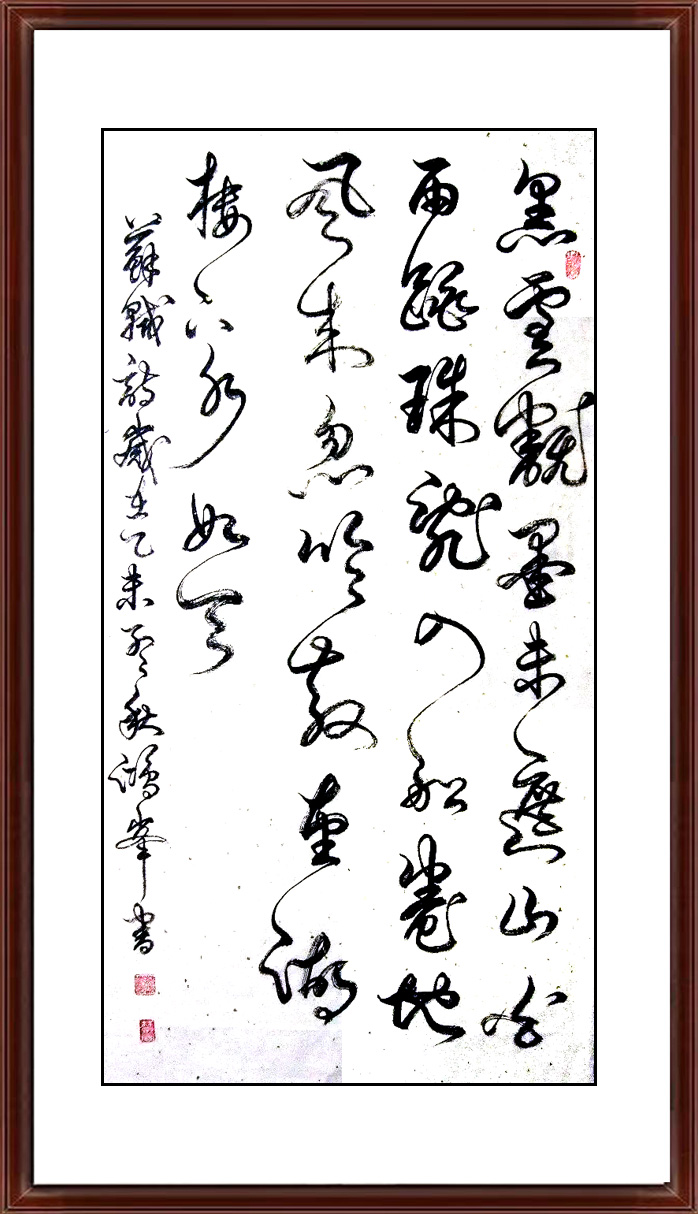 黑雲翻墨未遮山白
雨跳珠亂入船卷地
風來忽吹散望湖
樓下水如天
蘇軾詩歲在乙未秋鴻峯書